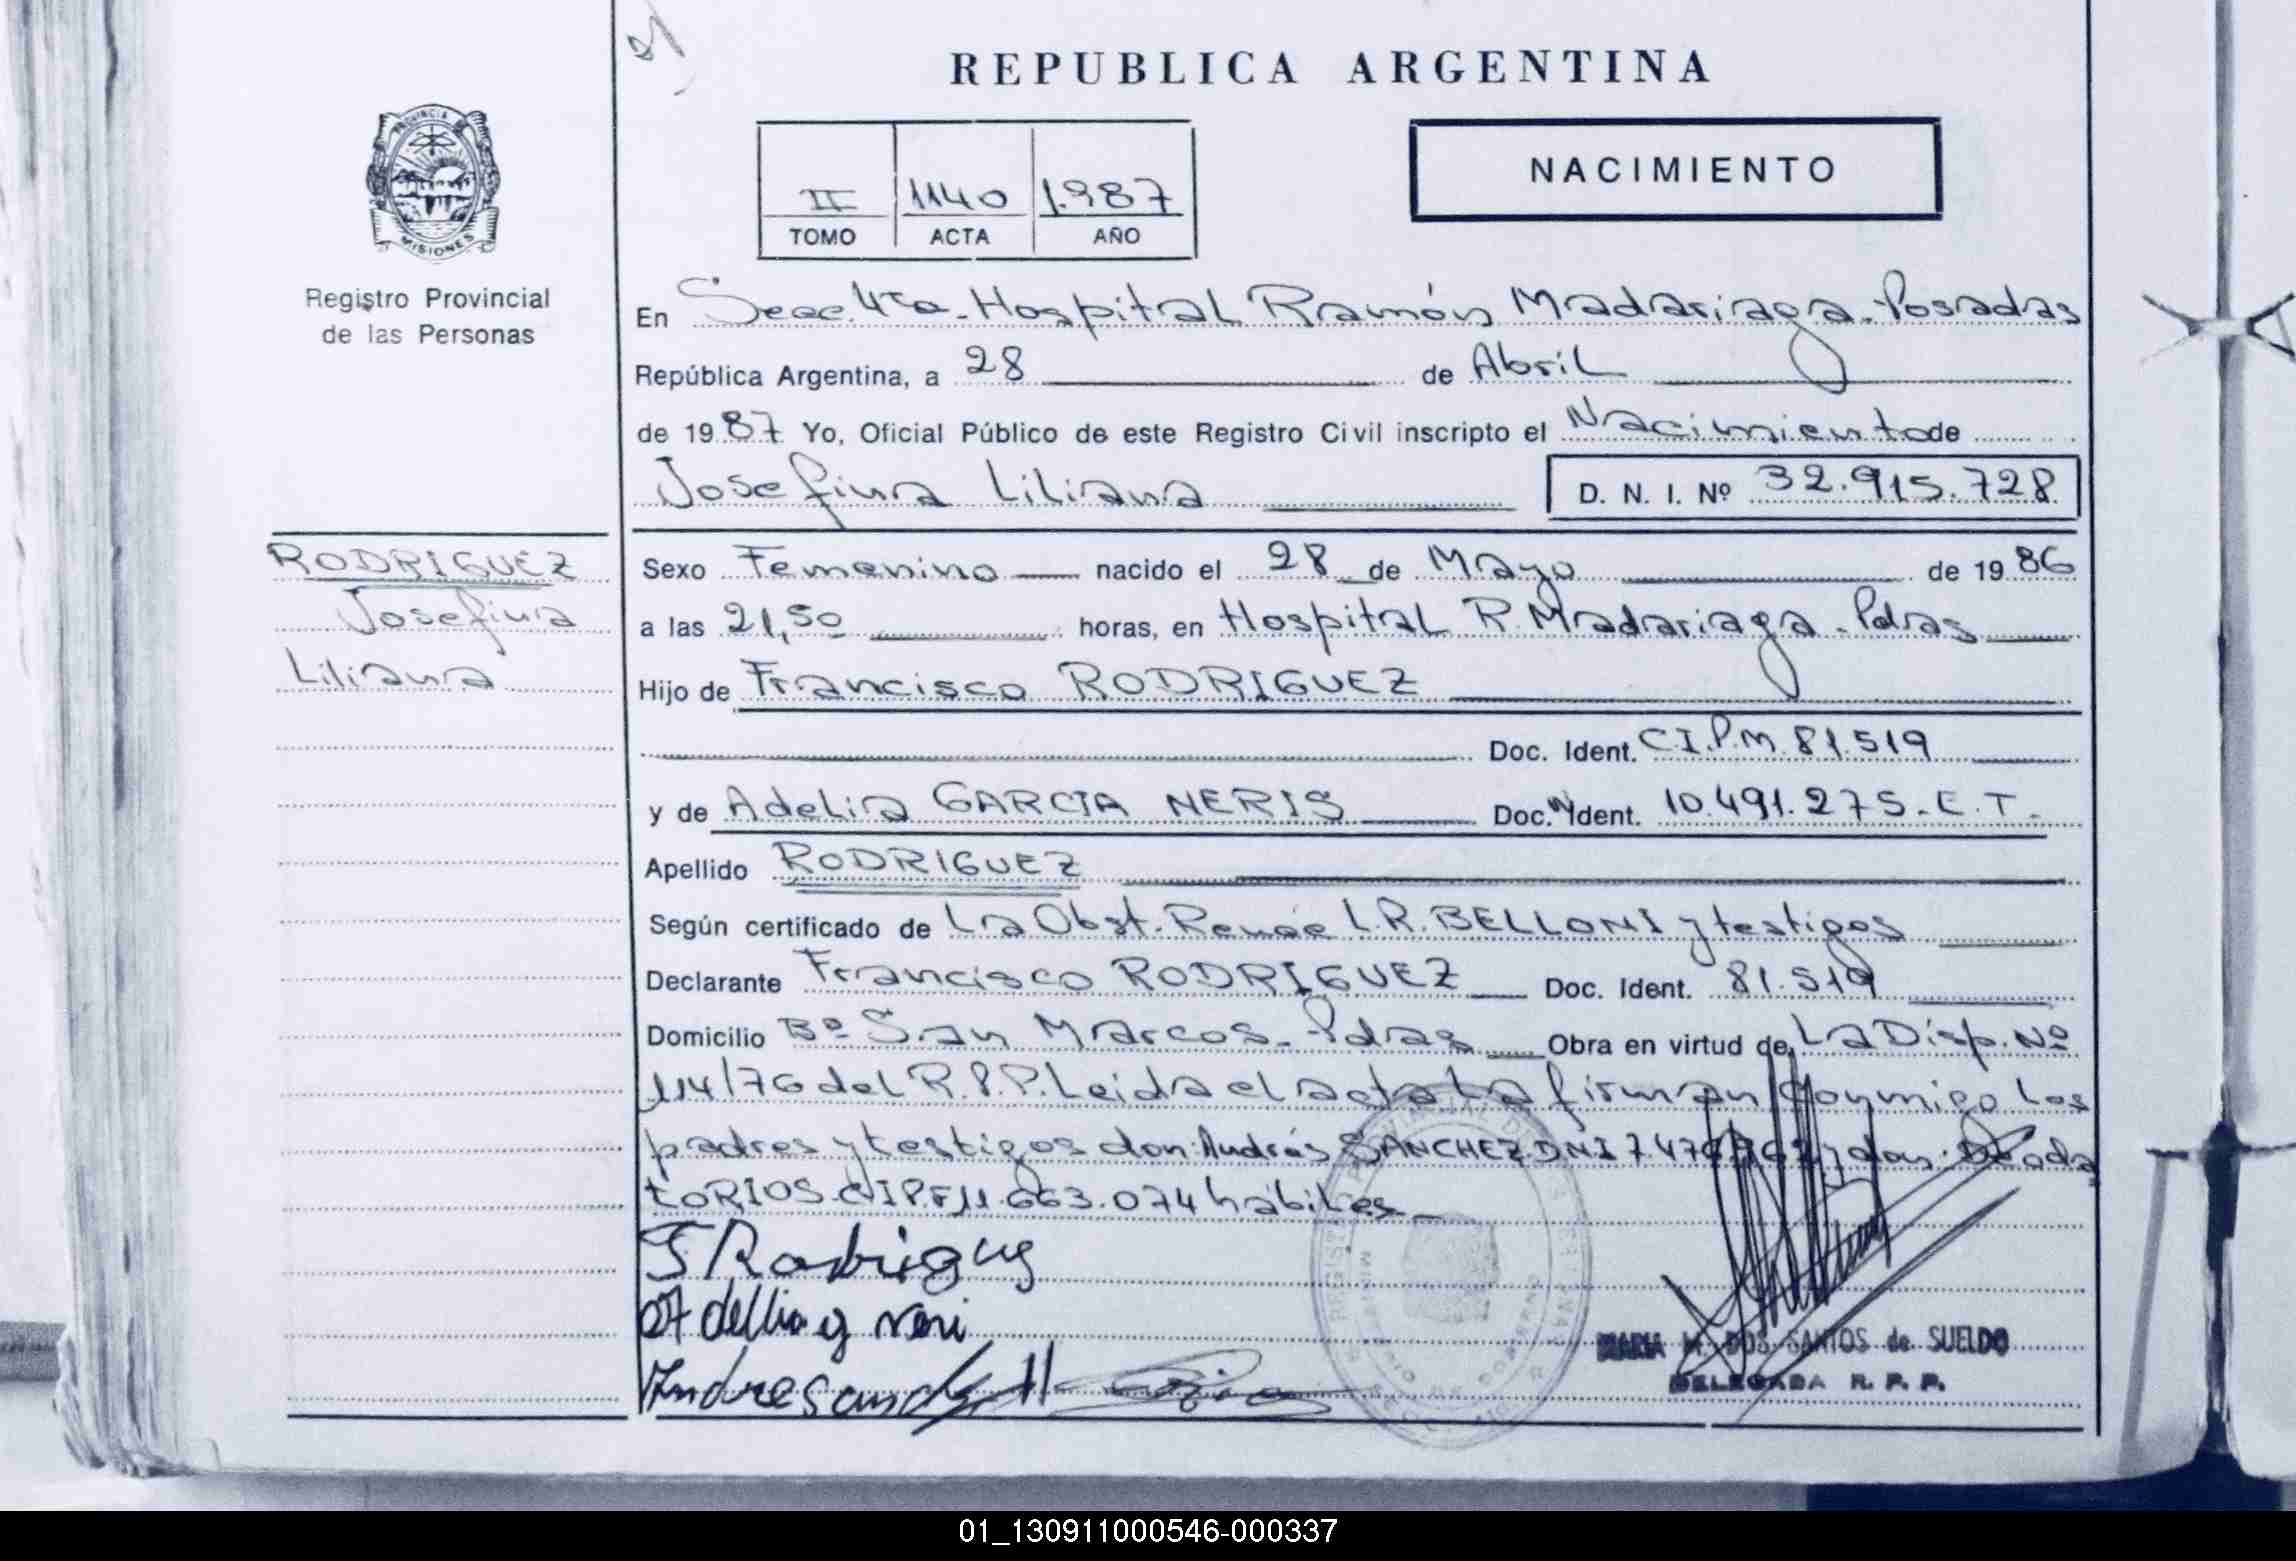 REPUBLICA ARGENTINA
PROVINCIA DE
MISIONES
Registro Provincial
de las Personas
II 1140 1.987
TOMO ACTA AÑO
NACIMIENTO
En Secc. 4ta. Hospital Ramón Madariaga. Posadas
República Argentina, a 28 de Abril
de 1987 Yo, Oficial Público de este Registro Civil inscripto el Nacimiento de
Josefina Liliana D. N. I. Nº 32.915.728
RODRIGUEZ
Josefina
Liliana
Sexo Femenino nacido el 28 de Mayo de 1986
a las 21,50 horas, en Hospital R. Madariaga. Pdas
Hijo de Francisco RODRIGUEZ
Doc. Ident. C.I.P.M. 81.519
y de Adelia GARCIA NERIS Doc. Ident. 10.491.275. C.T.
Apellido RODRIGUEZ
Según certificado de La Obst. Renée L.R. BELLONI y testigos
Declarante Francisco RODRIGUEZ Doc. Ident. 81.519
Domicilio Bº San Marcos. Pdas Obra en virtud de La Disp. Nº
114/76 del R.P.P. Leida el acta La firman conmigo Los
padres y testigos don: Andrés SANCHEZ DNI y don:
RIOS 663.074 hábiles
F Rodrigues
Adellia g neri
Andre sandes
MARIA M. DOS SANTOS de SUELDO
DELEGADA R. P. P.
01_130911000546-000337